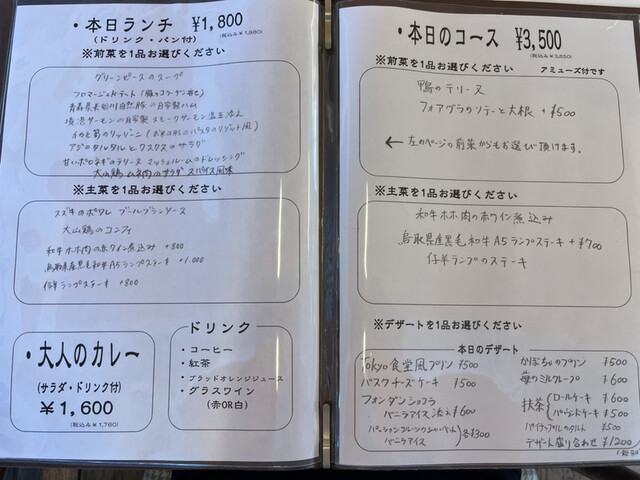 ・本日ランチ ¥1,800
(ドリンク・パン付) (税込み¥1,980)
※前菜を1品お選びください
グリーンピースのスープ
フロマージュドテート(豚のコラーゲン寄せ)
青森県長谷川自然豚の自家製ハム
境港サーモンの自家製スモークサーモン 温玉添え
イカと筍のリッゾーニ(お米の形のパスタのリゾット風)
アジのタルタルとクスクスのサラダ
マッシュルームのドレッシング
大山鶏ムネ肉のサラダ スパイス風味
※主菜を1品お選びください
スズキのポワレ ブールブランソース
大山鶏のコンフィ
和牛ホホ肉の赤ワイン煮込み +800
鳥取県産黒毛和牛A5ランプステーキ +1,000
仔羊ランプステーキ +800
・大人のカレ〜
(サラダ・ドリンク付)
¥1,600
(税込み¥1,760)
ドリンク
・コーヒー
・紅茶
・ブラッドオレンジジュース
・グラスワイン
(赤OR白)
・本日のコース ¥3,500
(税込み¥3,850)
※前菜を1品お選びください アミューズ付です
鴨のテリーヌ
フォアグラのソテーと大根 +¥500
← 左のページの前菜からもお選び頂けます。
※主菜を1品お選びください
和牛ホホ肉の赤ワイン煮込み
鳥取県産黒毛和牛A5ランプステーキ +¥700
仔羊ランプのステーキ
※デザートを1品お選びください
本日のデザート
Tokyo食堂風プリン ¥500
バスクチーズケーキ ¥500
フォンダンショコラ
バニラアイス添え ¥600
バニラアイス 各¥300
かぼちゃのプリン ¥500
苺のミルクレープ ¥600
抹茶 ロールケーキ ¥600
パウンドケーキ ¥500
パイナップルのタルト ¥500
デザート盛り合わせ ¥1200